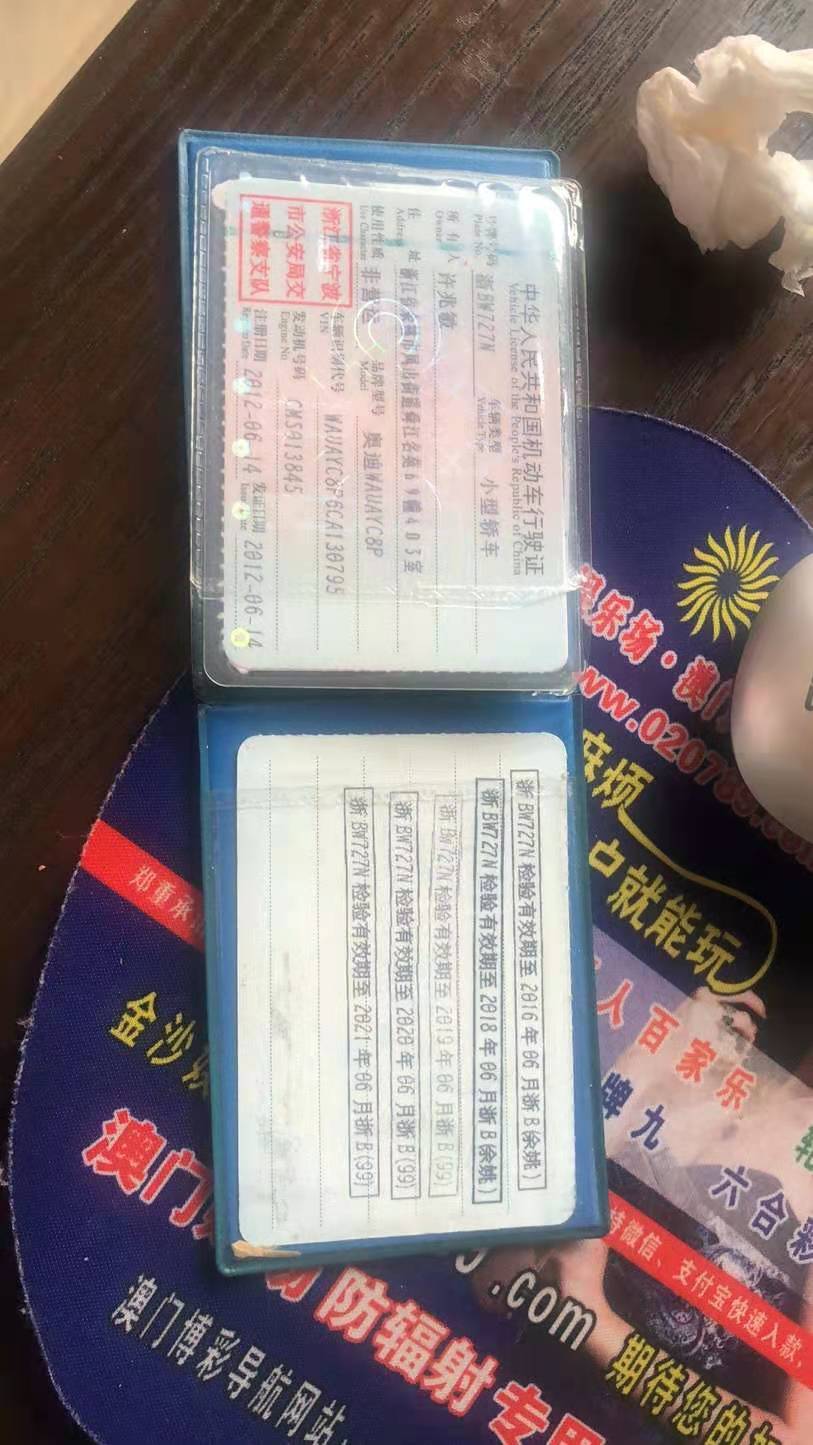 中华人民共和国机动车行驶证
Vehicle License of the People's Republic of China
号牌号码 浙BW727N 车辆类型 小型轿车
Plate No. Vehicle Type
所有人 许兆敏
Owner
住址 浙江省余姚市凤山街道舜江名苑69幢403室
Address
使用性质 非营运 品牌型号 奥迪WAUAYC8P
Use Character Model
浙江省宁波
市公安局交
通警察支队
车辆识别代号 WAUAYC8P6CA130795
VIN
发动机号码 CMSA13845
Engine No.
注册日期 2012-06-14 发证日期 2012-06-14
Register Date Issue Date
浙BW727N检验有效期至2016年06月浙B(余姚)
浙BW727N检验有效期至2018年06月浙B(余姚)
浙BW727N检验有效期至2019年06月浙B(99)
浙BW727N检验有效期至2020年06月浙B(99)
浙BW727N检验有效期至2021年06月浙B(99)
乐场·澳门
麻烦
就能玩
人百家乐
牌九
六合彩
郑重承
金沙
澳门
防辐射 专用
.com 期待您的
持微信、支付宝快速入款,
澳门博彩导航网站